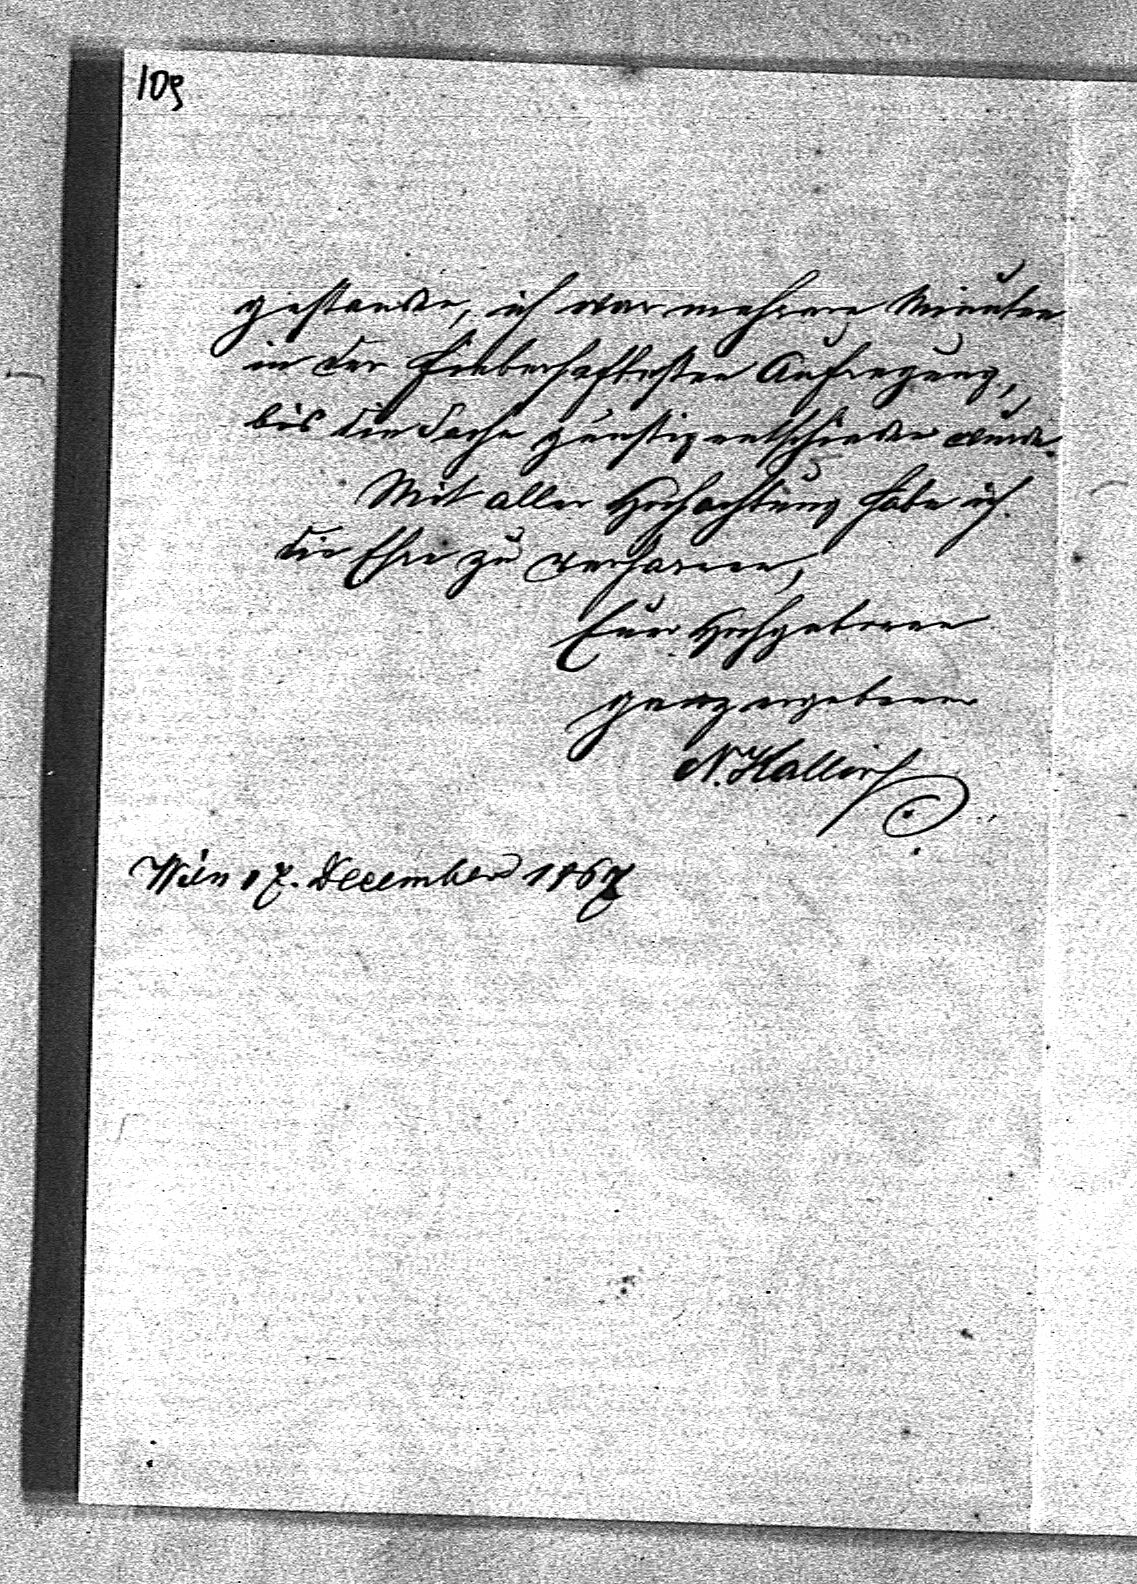 109
gestanden, ich war mehrere Minuten
in der fieberhaftesten Aufregung,
bis die Sache günstig entschieden wurde.
Mit aller Hochachtung habe ich
die Ehre zu verharren,
Euer Hochgeboren
ganz ergebener
N. Hallirsch
Wien 17. December 1867